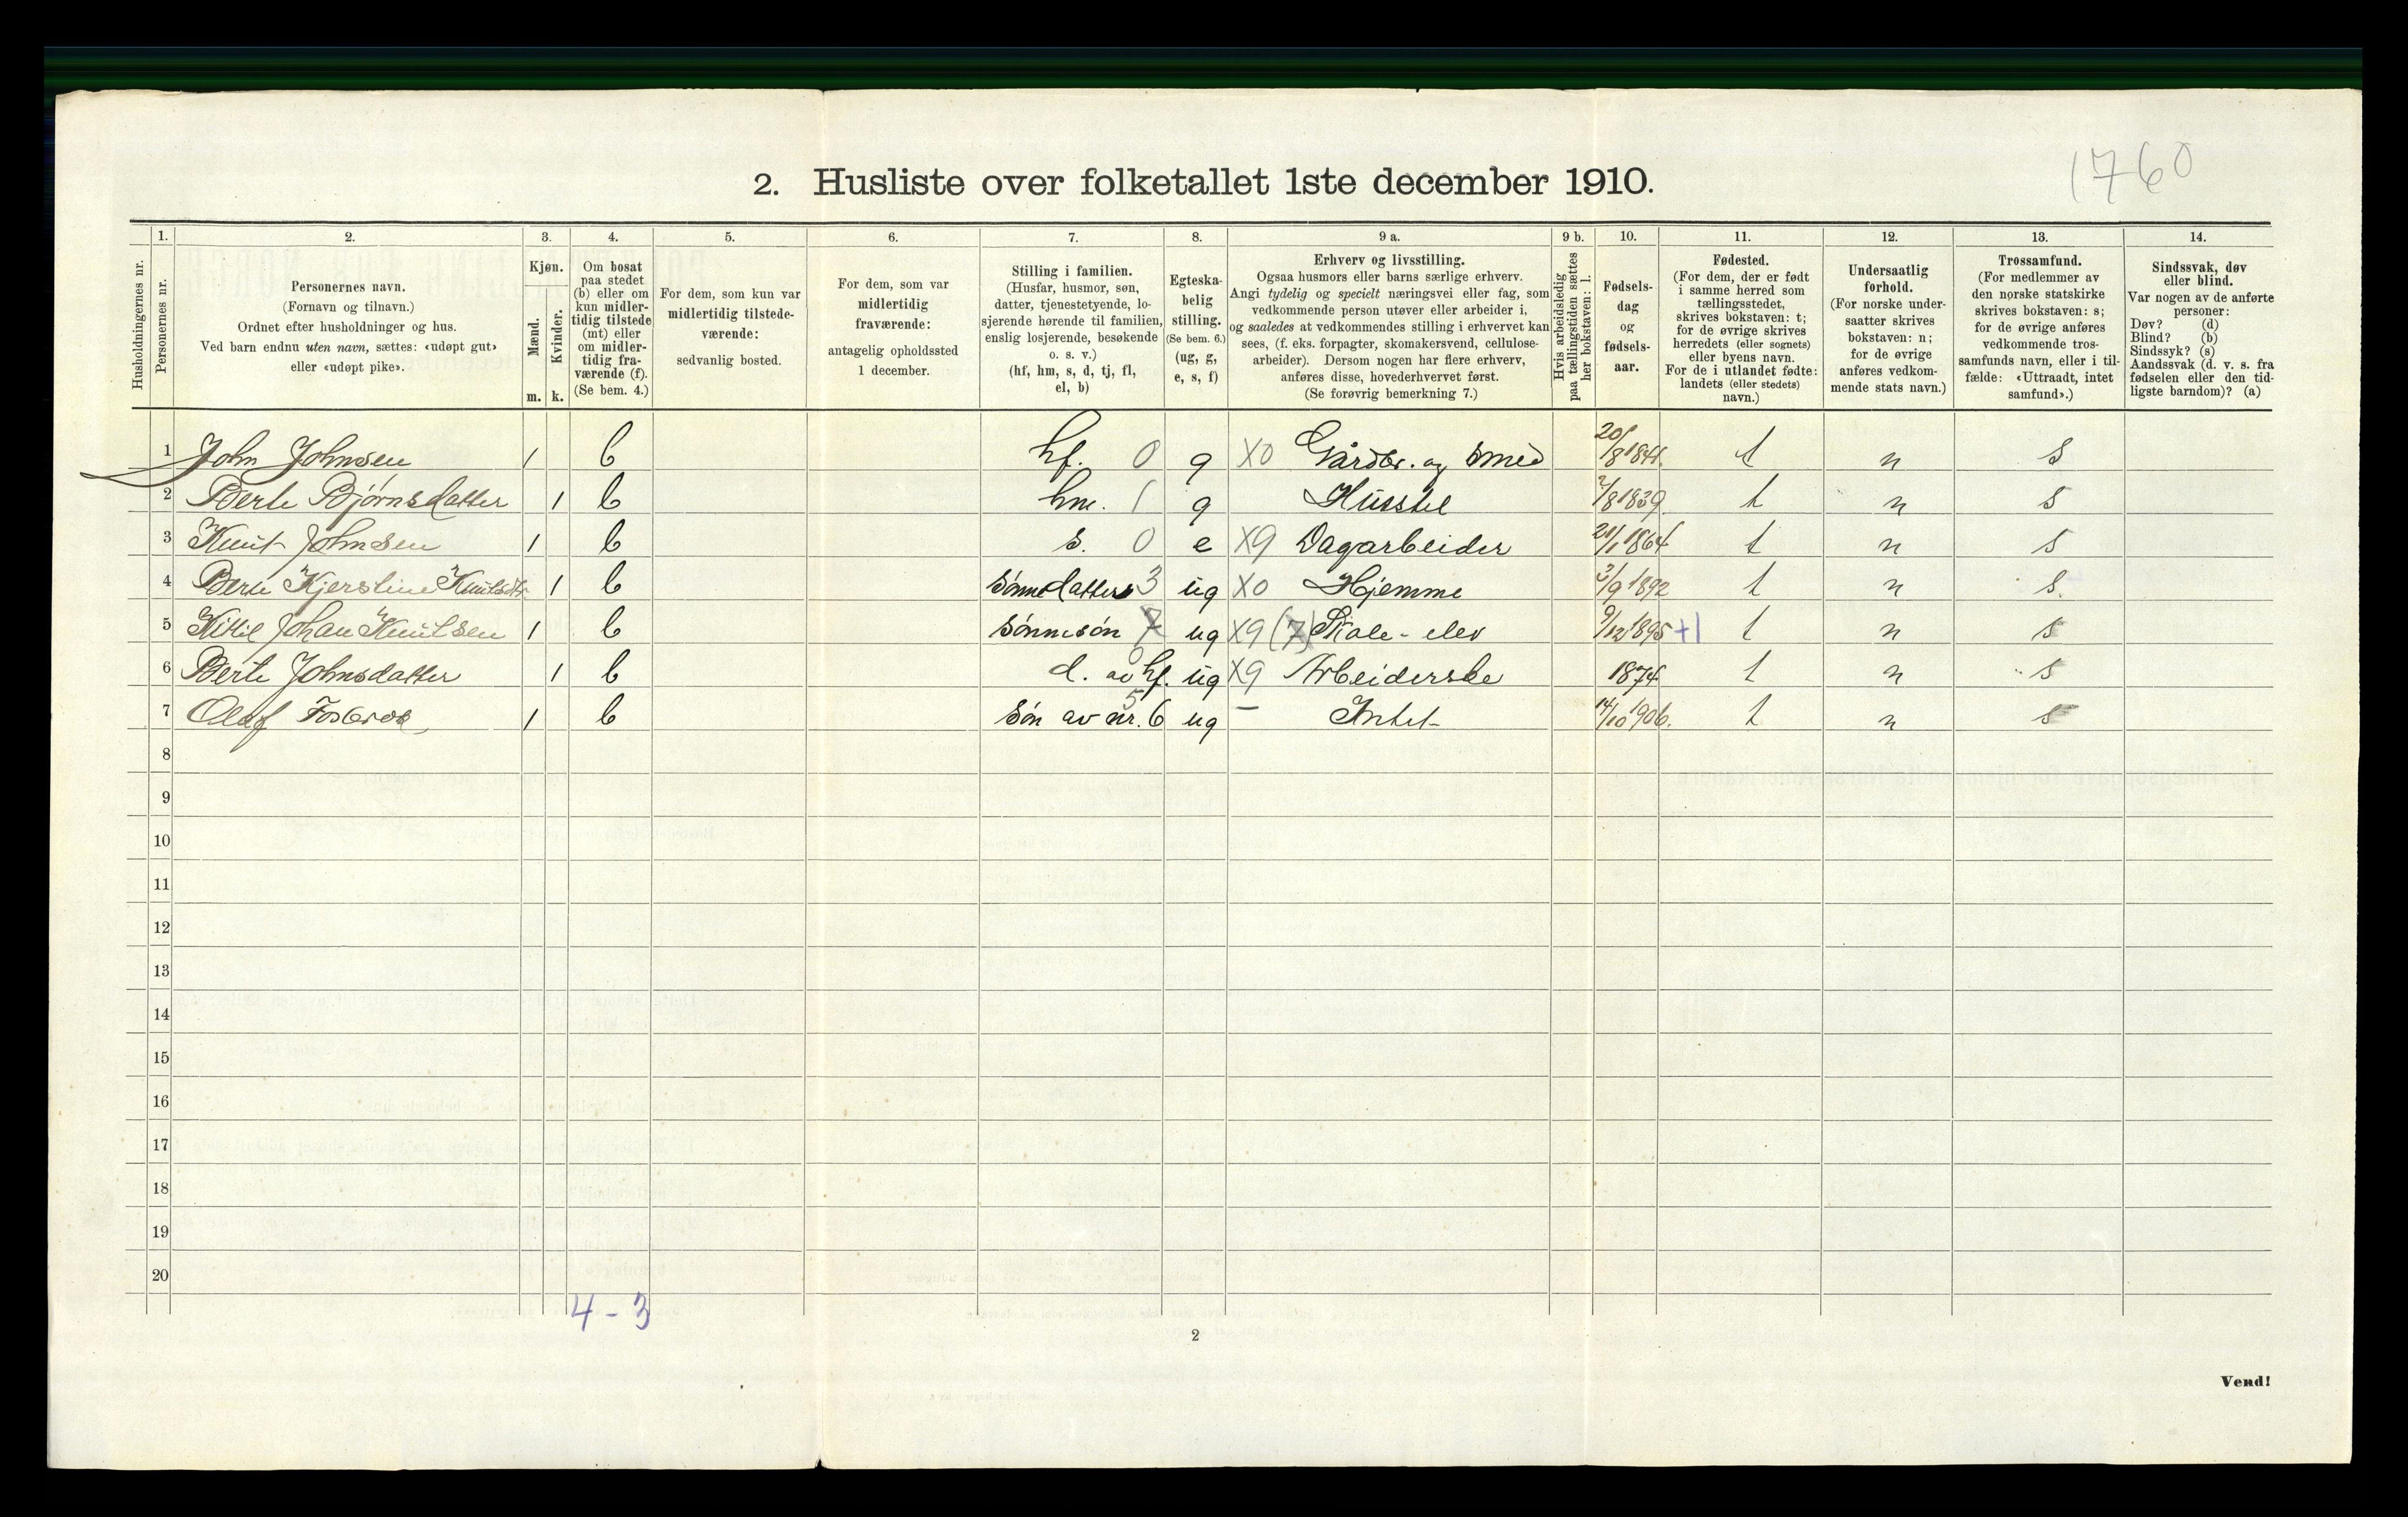 1760
2. Husliste over folketallet 1ste december 1910.
Husholdningernes nr.
1.
Personernes nr.
2.
Personernes navn.
(Fornavn og tilnavn.)
Ordnet efter husholdninger og hus.
Ved barn endnu uten navn, sættes: «udøpt gut»
eller «udøpt pike».
3.
Kjøn.
Mænd.
Kvinder.
m. k.
4.
Om bosat
paa stedet
(b) eller om
kun midler-
tidig tilstede
(mt) eller
om midler-
tidig fra-
værende (f).
(Se bem. 4.)
5.
For dem, som kun var
midlertidig tilstede-
værende:
sedvanlig bosted.
6.
For dem, som var
midlertidig
fraværende:
antagelig opholdssted
1 december.
7.
Stilling i familien.
(Husfar, husmor, søn,
datter, tjenestetyende, lo-
sjerende hørende til familien,
enslig losjerende, besøkende
o. s. v.)
(hf, hm, s, d, tj, fl,
el, b)
8.
Egteska-
belig
stilling.
(Se bem. 6.)
(ug, g,
e, s, f)
9 a.
Erhverv og livsstilling.
Ogsaa husmors eller barns særlige erhverv.
Angi tydelig og specielt næringsvei eller fag, som
vedkommende person utøver eller arbeider i,
og saaledes at vedkommendes stilling i erhvervet kan
sees, (f. eks. forpagter, skomakersvend, cellulose-
arbeider). Dersom nogen har flere erhverv,
anføres disse, hovederhvervet først.
(Se forøvrig bemerkning 7.)
9 b.
Hvis arbeidsledig
paa tællingstiden sættes
her bokstaven: l.
10.
Fødsels-
dag
og
fødsels-
aar.
11.
Fødested.
(For dem, der er født
i samme herred som
tællingsstedet,
skrives bokstaven: t;
for de øvrige skrives
herredets (eller sognets)
eller byens navn.
For de i utlandet fødte:
landets (eller stedets)
navn.)
12.
Undersaatlig
forhold.
(For norske under-
saatter skrives
bokstaven: n;
for de øvrige
anføres vedkom-
mende stats navn.)
13.
Trossamfund.
(For medlemmer av
den norske statskirke
skrives bokstaven: s;
for de øvrige anføres
vedkommende tros-
samfunds navn, eller i til-
fælde: «Uttraadt, intet
samfund».)
14.
Sindssvak, døv
eller blind.
Var nogen av de anførte
personer:
Døv? (d)
Blind? (b)
Sindssyk? (s)
Aandssvak (d. v. s. fra
fødselen eller den tid-
ligste barndom)? (a)
1 John Johnsen 1 b hf. 0 g X0 Gårdbr. og Smed 20/8 1841. t n s
2 Berte Bjørnsdatter 1 b hm. 1 g Husstel 2/8 1839 t n s
3 Knut Johnsen 1 b s. 0 e X9 Dagarbeider 21/1 1864 t n s
4 Berte Kjerstine Knutsdtr. 1 b sønnedatter 3 ug X0 Hjemme 3/9 1892 t n s.
5 Kittil Johan Knutsen 1 b sønnesøn 7 ug X9 (7) Skole-elev 9/12 1895 +1 t n s
6 Berte Johnsdatter 1 b d. av hf. 0 ug X9 Arbeiderske 1874 t n s
7 Olaf 1 b Søn av nr. 6 5 ug – Intet 14/10 1906. t n s
8
9
10
11
12
13
14
15
16
17
18
19
20
4 - 3
2
Vend!